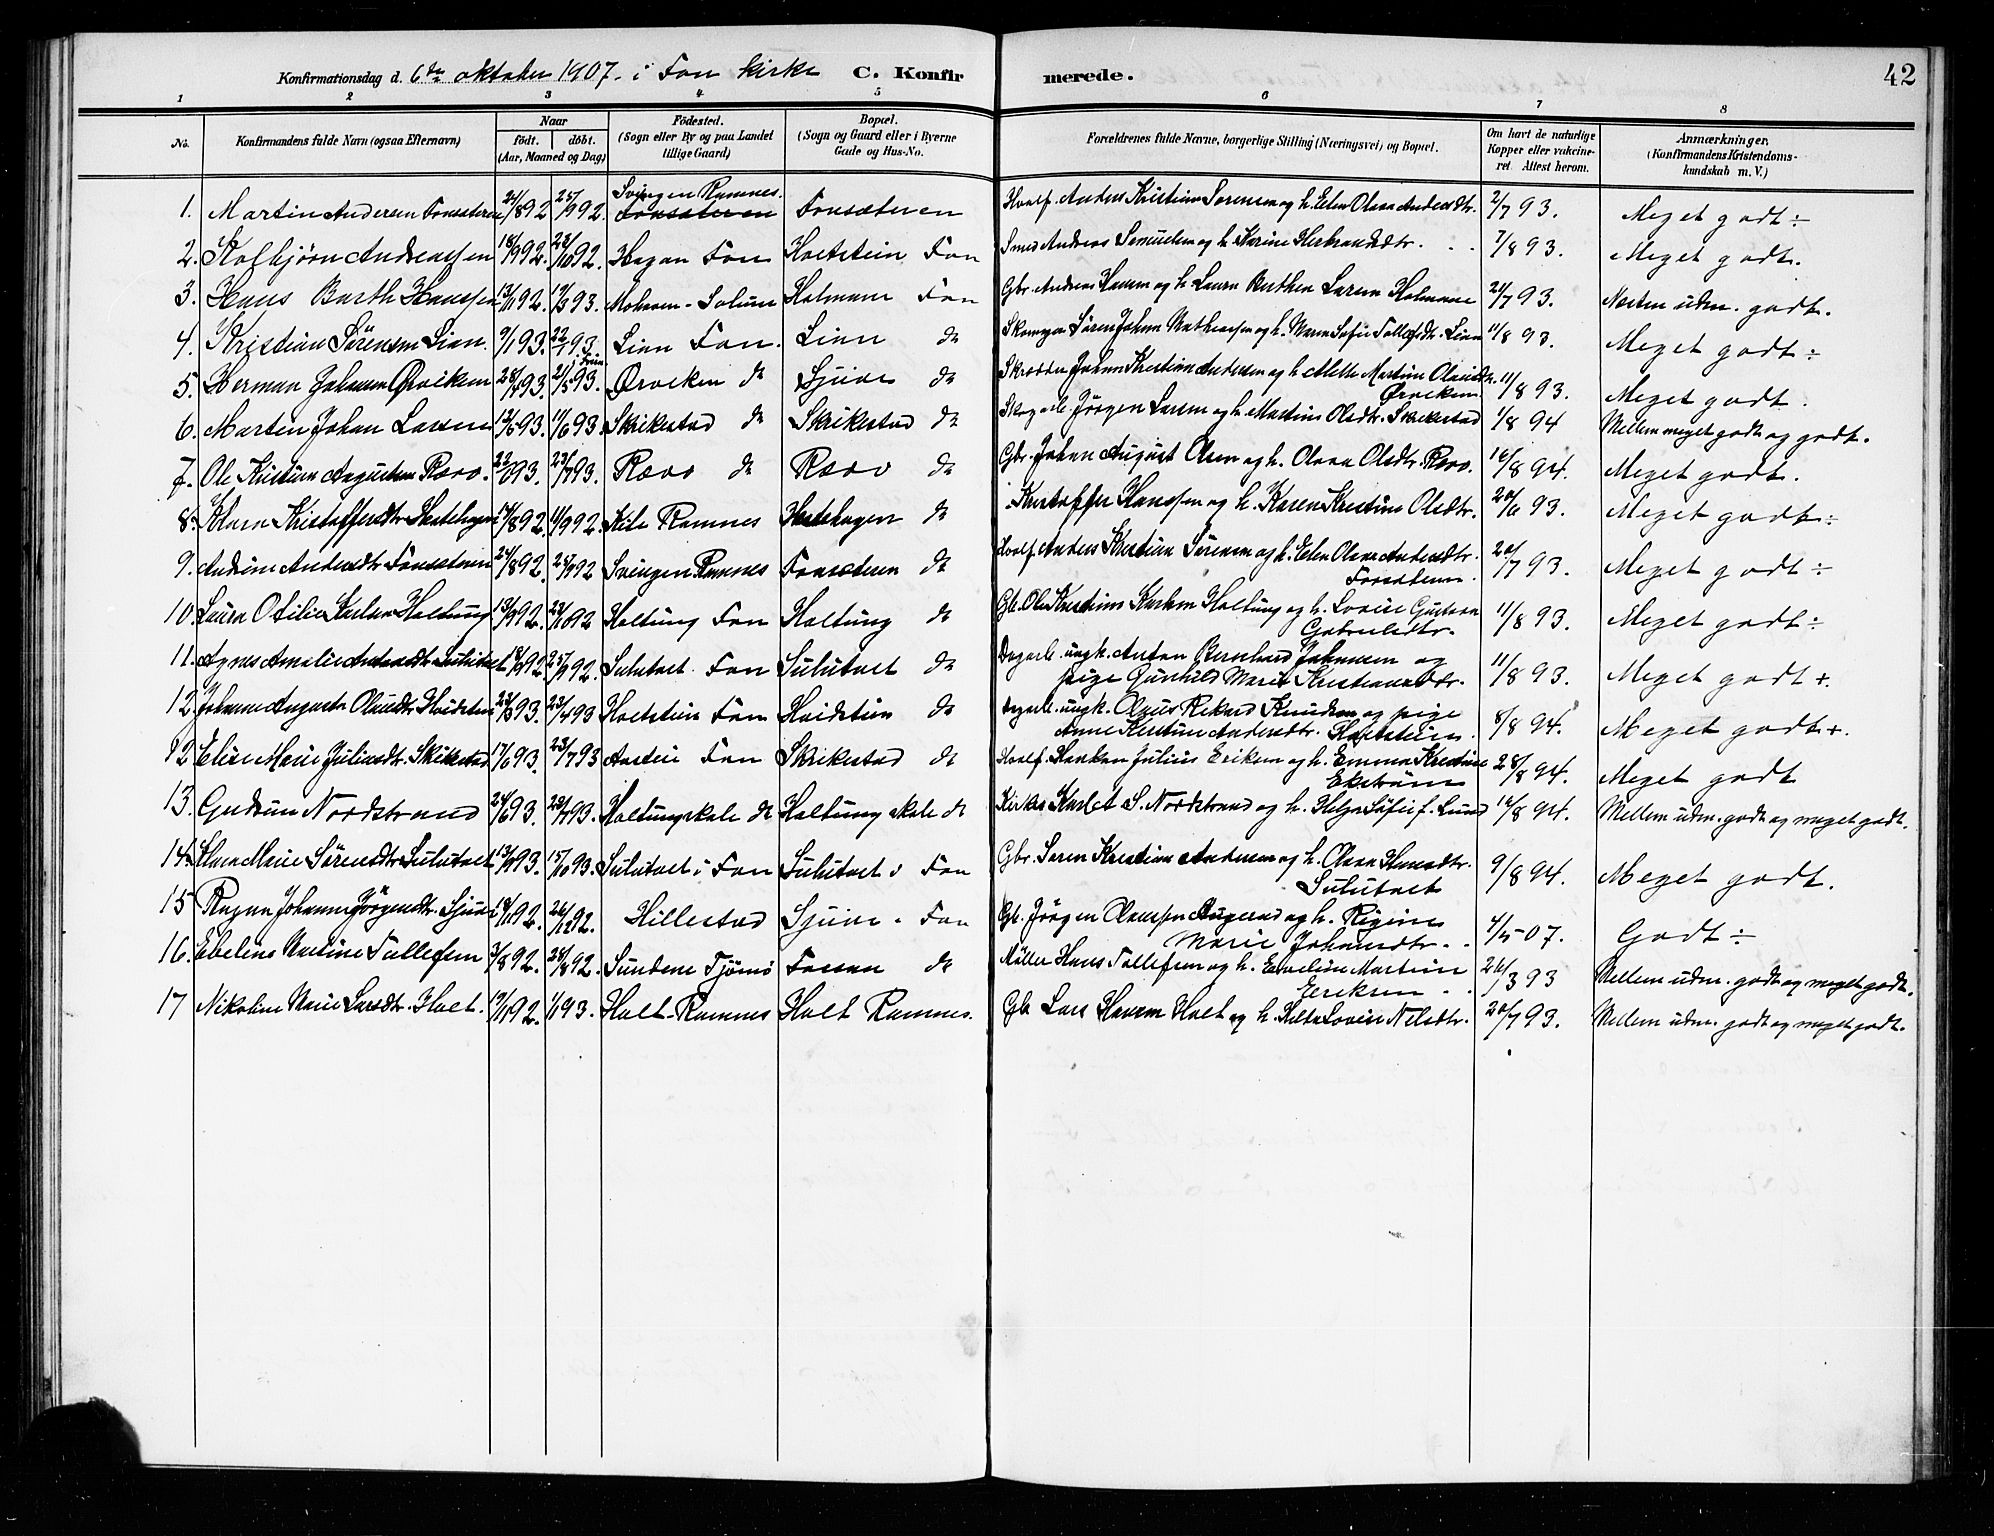 Konfirmationsdag d. 6te oktober 1907. i Fon kirke C. Konfirmerede. 42
1 2 3 4 5 6 7 8
No. Konfirmandens fulde Navn (ogsaa Efternavn) Naar födt. döbt. (Aar, Maaned og Dag) Födested. (Sogn eller By og paa Landet tillige Gaard) Bopæl. (Sogn og Gaard eller i Byerne Gade og Hus-No. Forældrenes fulde Navne, borgerlige Stilling (Næringsvei) og Bopæl. Om havt de naturlige Kopper eller vakcineret. Attest herom. Anmærkninger. (Konfirmandens Kristendomskundskab m. V.)
1. Martin Andersen Fonsæteren 24/8 92 25/9 92. Svingen Ramnes. Fonsæteren Fonsæteren Anders Kristian Sørensen og h. Elen Olava Andersdtr. 2/7 93. Meget godt ÷
2. Kolbjørn Andreassen 18/9 92. 23/10 92. Hagan Fon Holtstein Fon Smed Andreas Samuelsen og h. Karine Herbrandsdtr. 7/8 93. Meget godt.
3. Hans Barth Hanssen 13/11 92. 12/3 93. Solum Holmane Fon Gbr. Andreas Hansen og h. Laura Larsen Holmane 24/7 93. Næsten udm. godt.
4. Kristian Sørensen Lian. 9/1 93. 22/1 93. Lien Fon. Lien do Søren Johan Mathiassen og h. Maren Sofie Tollefsdtr. Lien 11/8 93. Meget godt ÷
5. Herman Johansen Ørviken 28/4 93. 21/5 93. Ørviken do Sjuve do Skrædder Johan Kristian Andersen og h. Mette Martine Olausdtr. Ørviken 11/8 93. Meget godt.
6. Martin Johan Larsen 13/5 93. 11/6 93. Skrikestad do Skrikestad do Jørgen Larsen og h. Martine Olsdtr. Skrikestad 1/8 94 Mellem meget godt og godt.
7. Ole Kristian Augustsen Rævo. 22/6 93. 23/7 93. Rævo do Rævo do Gbr. Johan August Olsen og h. Olava Olsdtr. Rævo. 16/8 94. Meget godt.
8. Klara Kristoffersdtr. 14/8 92. 11/9 92. Kile Ramnes do Kristoffer Hanssen og h. Karen Kristine Olsdtr. 20/6 93. Meget godt ÷
9. Andrine Andersdtr Fonsæteren 24/8 92. 25/9 92 Svingen Ramnes Fonsæteren do Anders Kristian Sørensen og h. Elen Olava Andersdtr. Fonsæteren. 20/7 93. Meget godt ÷
10. Laura Otilie Karlsen Holtung 13/9 92. 23/10 92 Holtung Fon Holtung do Gb. Ole Kristian Karlsen Holtung og h. Lovise Gustava Gabrielsdtr. 11/8 93. Meget godt ÷
11. Agnes Amalie Antonsdtr Sulutvet 92. 92. Sulutvet. Fon Sulutvet do Dagarb. ungk. Anton Bernhard Johansen og pige Gunhild Marie Kristiansdtr. 11/8 93. Meget godt +.
12 Johanne Augusta Olausdtr. Hvidstein 93. 23/4 93 Holtstein Fon Hvidstein do Dagarb. ungk. Olaus Rikard Knudsen og pige Anne Kristine Andersdtr. Holtstein. 8/8 94. Meget godt +.
12 Elise Marie Juliusdtr. Skrikestad 17/6 93. 23/7 93 Fon Skrikestad do Haaken Julius Eriksen og h. Emma Kristine Ekstrøm 28/8 94. Meget godt
13. Gudrun Nordstrand 24/6 93. 93. Holtungskole do Holtungskole do S. Nordstrand og h. Helga Sofie f. Lund 16/8 94. Mellem udm. godt og meget godt.
14. Marie Sørensdtr Sulutvet 93. 15/10 93. Sulutvet i Fon Sulutvet i Fon Gbr. Søren Kristian Andersen og h. Olava Hansdtr. Sulutvet 9/8 94. Meget godt.
15 Ragna Johanne Jørgensdtr. Sjuve 92. 26/12 92. Hillestad Sjuve. Fon Gb. Jørgen Olaussen og h. Regine Marie Johansdtr. 4/5 07. Godt ÷
16. Evelina Martine Tollefsen 3/8 92. 28/8 92. Sundene Tjømø Fossan do Møller Hans Tollefsen og h. Evelise Martine Eriksen 26/3 93 Mellem udm. godt og meget godt.
17 Nikoline Marie Larsdtr. Holt. 19/11 92. 1/1 93. Holt Ramnes Holt Ramnes. Gb. Lars Hansen Holt og h. Hilda Lovise Nilsdtr. 20/7 93. Mellem udm. godt og meget godt.